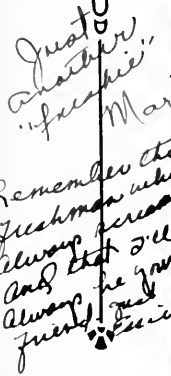 Just
another
"freshie"
Mar
Remember the
Freshman who
always
And that I'll
always be your
friend. Just
Essie